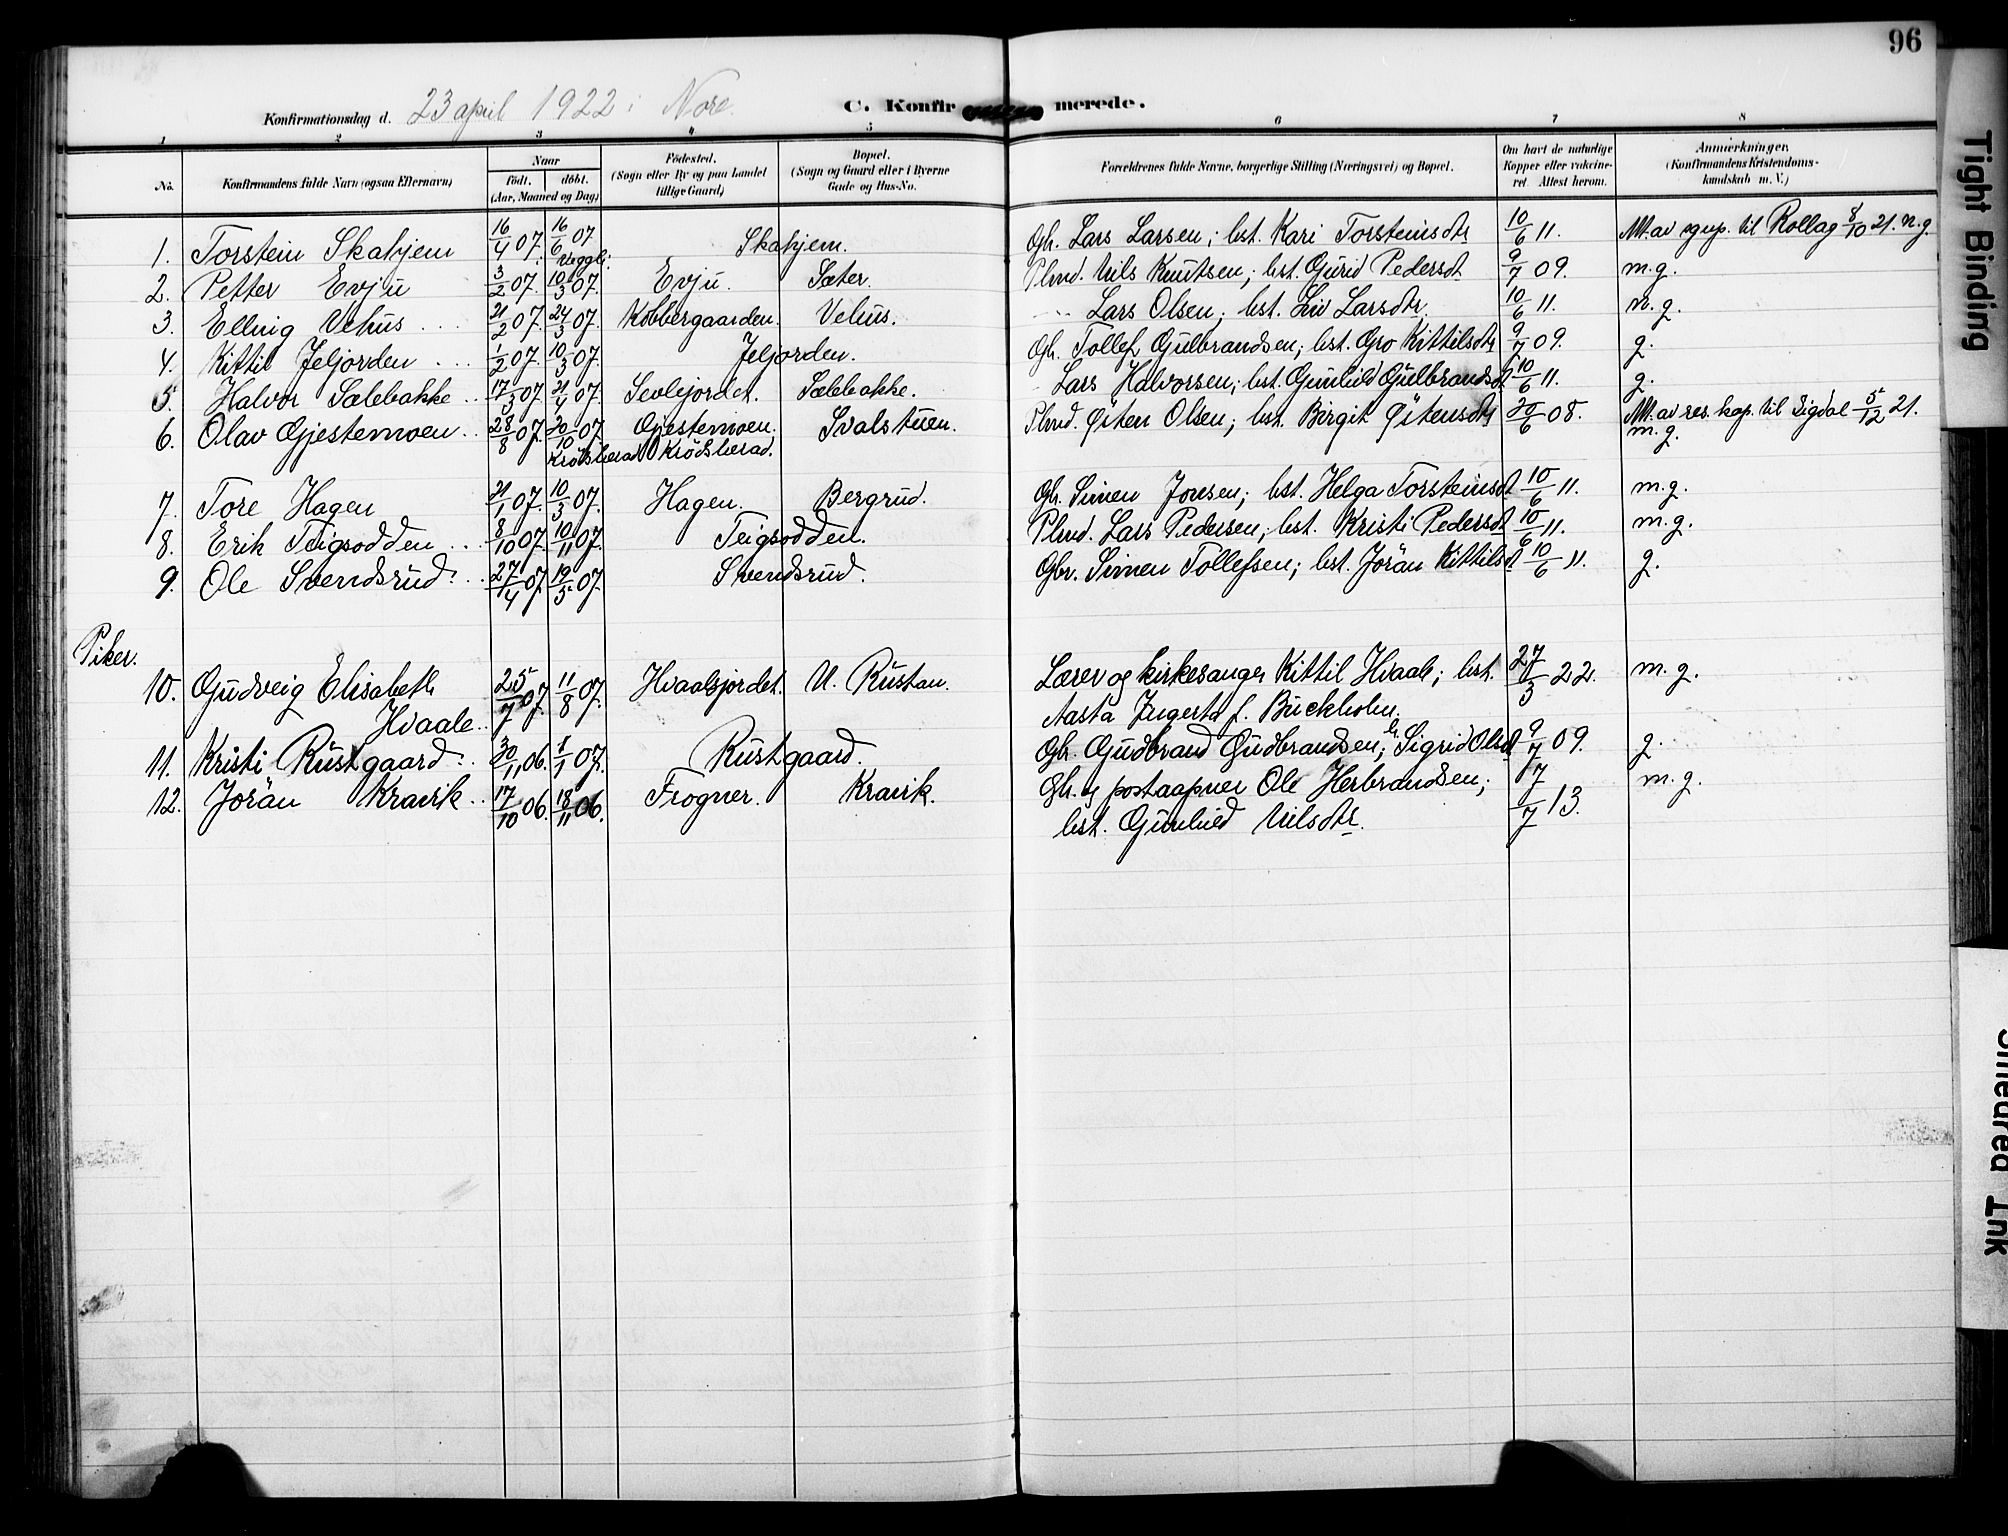 96
Konfirmationsdag d. 23 april 1922 i Nore.
C. Konfirmerede.
1 2 3 4 5 6 7 8
No. Konfirmandens fulde Navn (ogsaa Efternavn) Naar Født. døbt. (Aar, Maaned og Dag) Fødested. (Sogn eller By og paa Landet tillige Gaard) Bopæl. (Sogn og Gaard eller i Byerne Gade og Hus-No. Forældrenes fulde Navne, borgerlige Stilling (Næringsvei) og Bopæl. Om havt de naturlige Kopper eller vakcineret. Attest herom. Anmærkninger. (Konfirmandens Kristendomskundskab m. V.)
1. Torstein Skahjem 16/4 07. 16/6 07 i Veggli: Skahjem. Gbr. Lars Larsen; hst. Kari Torsteinsdtr 10/6 11. Att. av sgnp. til Rollag 8/10 21. m.g.
2. Petter Evju 3/2 07. 10/3 07. Evju. Sæter. Plmd. Nils Knutsen; hst. Guri Pedersdt 9/7 09. m.g.
3. Elling Vehus 21/2 07. 24/3 07. Kobbergaarden. Vehus. Lars Olsen; hst. Liv Larsdtr. 10/6 11. m.g.
4. Kittil Jeljorden 1/2 07. 10/3 07. Jeljorden. Gbr. Tollef Gulbrandsen; hst. Gro Kittilsdtr 9/7 09. g.
5. Halvor Sælebakke 17/3 07. 21/4 07. Sevlejordet. Sælebakke. Lars Halvorsen; hst. Gunhild Gulbrandsdt 10/6 11. g.
6. Olav Gjestemoen 28/8 07. 20/10 07. Krødsherad Gjestemoen. Krødsherad. Svalstuen. Plmd. Østen Olsen; hst. Birgit Østensdtr 20/6 08. Att. av res. kap. til Sigdal 5/12 21. m.g.
7. Tore Hagen 21/1 07. 10/3 07. Hagen. Bergrud. Gbr. Simen Jonsen; hst. Helga Torsteinsdt 10/6 11. m.g.
8. Erik Teigsodden 8/10 07. 10/11 07. Teigsodden. Plmd. Lars Pedersen; hst. Kristi Pedersdt 10/6 11. m.g.
9. Ole Svendsrud 27/4 07. 19/5 07. Svendsrud. Gbr. Simen Tollefsen; hst. Jøran Kittilsd 10/6 11. g.
Piker.
10. Gudveig Elisabeth Hvaale 25/7 07. 11/8 07. Hvaalsjordet. N. Rustan. Lærer og kirkesanger Kittil Hvaale; hst. Aasta Ingerta f. Buckholm. 27/3 22. m.g.
11. Kristi Rustgaard 30/11 06. 1/1 07. Rustgaard. Gbr. Gudbrand Gudbrandsen; h. Sigrid Olsdt 9/7 09. g.
12. Jøran Kravik 17/10 06. 18/11 06. Frogner. Kravik. Gbr. og postaapner Ole Herbrandsen; hst. Gunhild Nilsdtr. 7/7 13. m.g.
Tight Binding
Smeared Ink